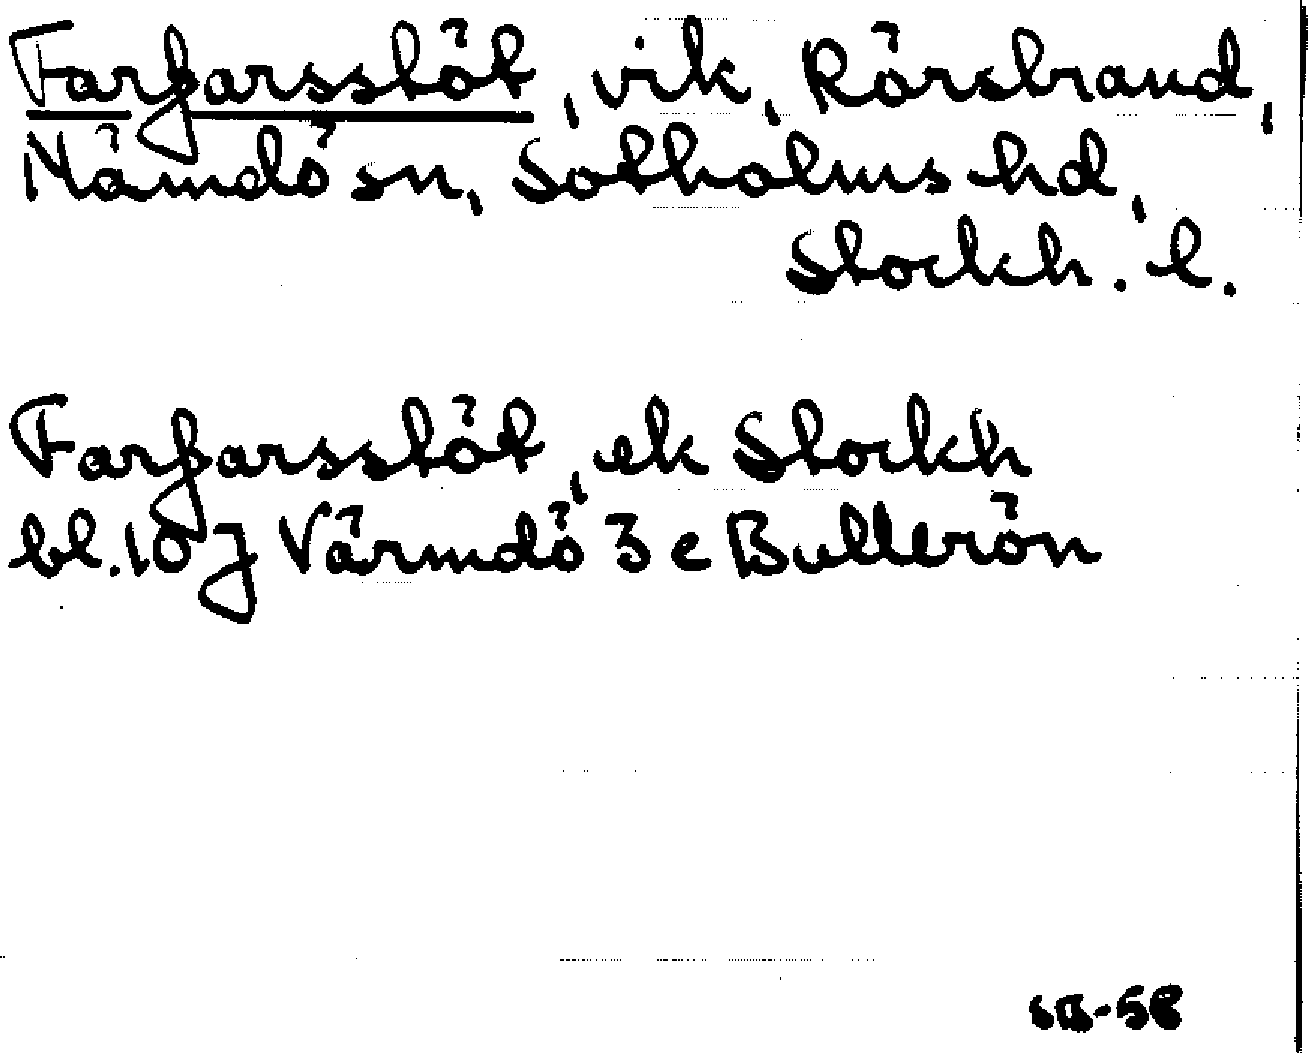 Farfarsstöt, vik, Rörstrand,
Nämdö sn, Sotholms hd,
Stockh. l.
Farfarsstöt, ek Stockh
bl. 10 J Värmdö 3 e Bullerön